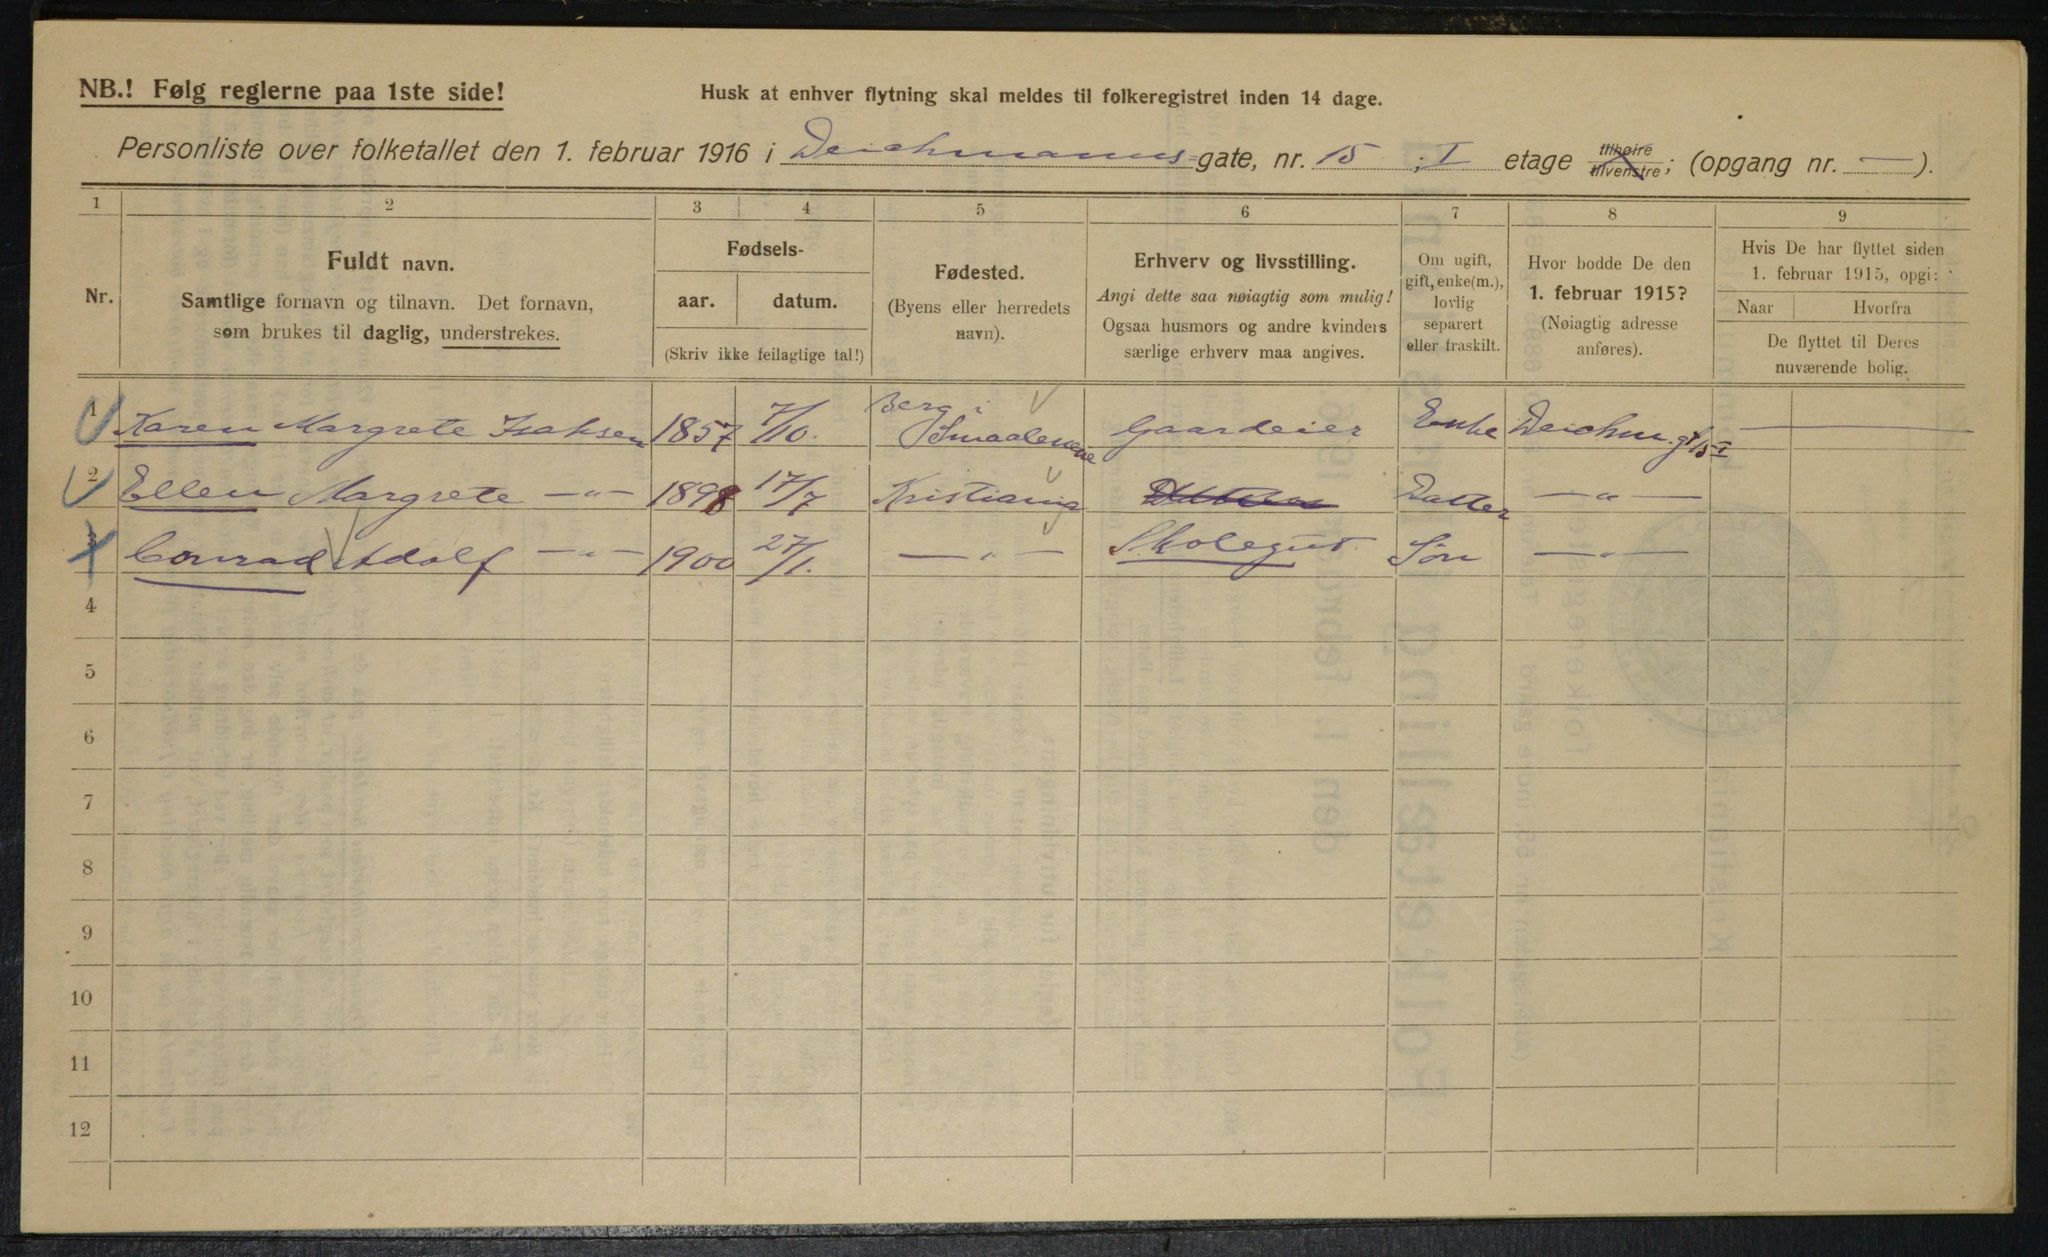 NB.! Følg reglerne paa 1ste side!
Husk at enhver flytning skal meldes til folkeregistret inden 14 dage.
Personliste over folketallet den 1. februar 1916 i Deichmanns-gate, nr. 15 ; I etage tilhøire tilvenstre; (opgang nr. — ).
1 2 3 4 5 6 7 8 9
Nr.
Fuldt navn.
Samtlige fornavn og tilnavn. Det fornavn,
som brukes til daglig, understrekes.
Fødsels-
aar. datum.
(Skriv ikke feilagtige tal!)
Fødested.
(Byens eller herredets
navn).
Erhverv og livsstilling.
Angi dette saa nøiagtig som mulig!
Ogsaa husmors og andre kvinders
særlige erhverv maa angives.
Om ugift,
gift, enke(m.),
lovlig
separert
eller fraskilt.
Hvor bodde De den
1. februar 1915?
(Nøiagtig adresse
anføres).
Hvis De har flyttet siden
1. februar 1915, opgi:
Naar Hvorfra
De flyttet til Deres
nuværende bolig.
1 Karen Margrete Isaksen 1857 7/10. Berg i Smaalenene Gaardeier Enke Deichm. gt 15 I —
2 Ellen Margrete —"— 1898 17/7 Kristiania Datter —"—
3 Conrad Adolf —"— 1900 27/1. —"— Skolegut Søn —"—
4
5
6
7
8
9
10
11
12